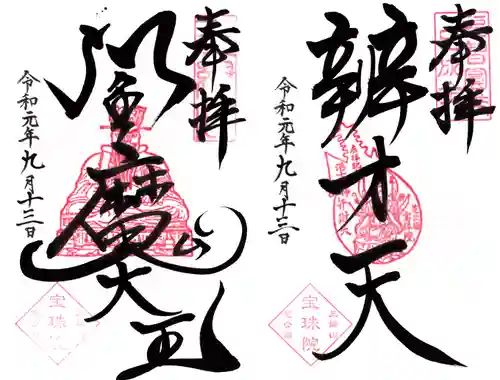 奉拝
辨才天
令和元年九月十三日
三縁山
宝珠院
奉拝
閻魔大王
令和元年九月十三日
宝珠院